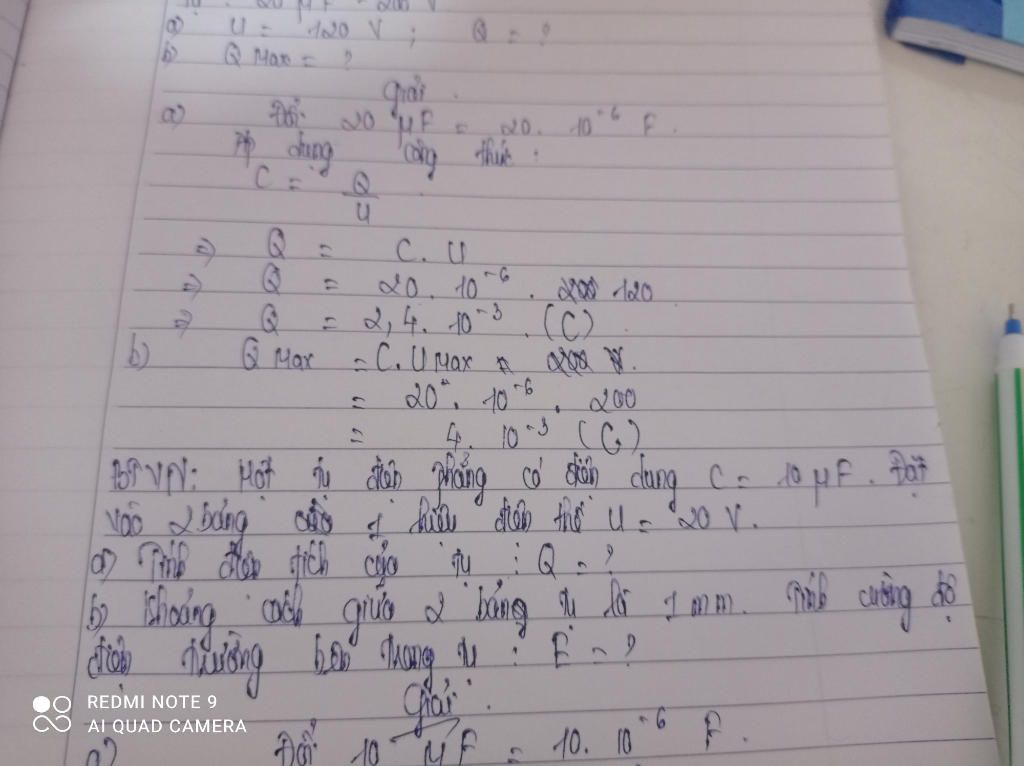 20 μF - 200 V
a) U = 120 V ; Q = ?
b) Q Max = ?
Giải.
a) Đổi 20 μF = 20. 10⁻⁶ F.
Áp dụng công thức:
C = Q/U
=> Q = C. U
=> Q = 20. 10⁻⁶. 120
=> Q = 2,4. 10⁻³. (C)
b) Q Max = C. U Max
= 20. 10⁻⁶. 200
= 4. 10⁻³ (C)
BTVN: Một tụ điện phẳng có điện dung C = 10 μF. Đặt
vào 2 bảng 1 hiệu điện thế U = 20 V.
a) Tính điện tích của tụ : Q = ?
b) Khoảng cách giữa 2 bảng tụ là 1 mm. Tính cường độ
điện trường bên trong tụ : E = ?
Giải.
a) Đổi 10 μF = 10. 10⁻⁶ F.
REDMI NOTE 9
AI QUAD CAMERA